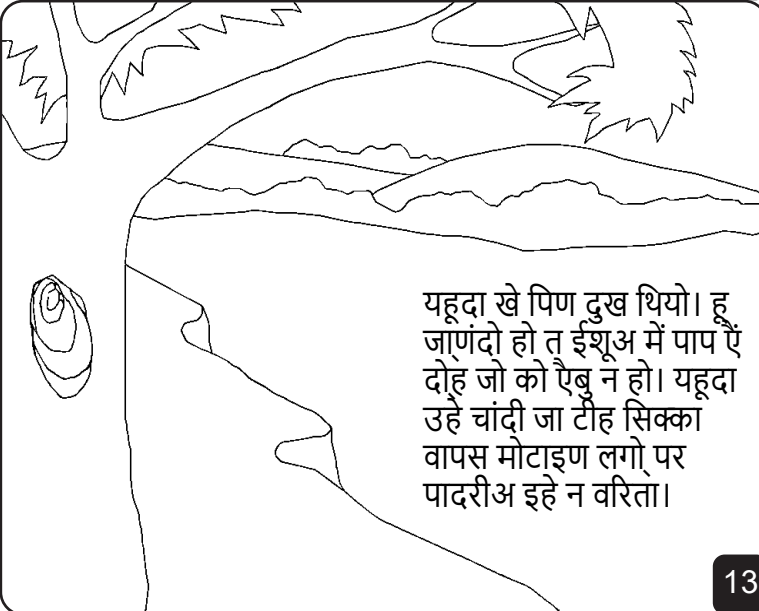 यहूदा खे पिण दुख थियो। हू
जा॒णंदो हो त ईशूअ में पाप ऐं
दोह॒ जो को ऐबु न हो। यहूदा
उहे चांदी जा टीह सिक्का
वापस मोटाइण लगो॒ पर
पादरीअ इहे न वरिता।
13